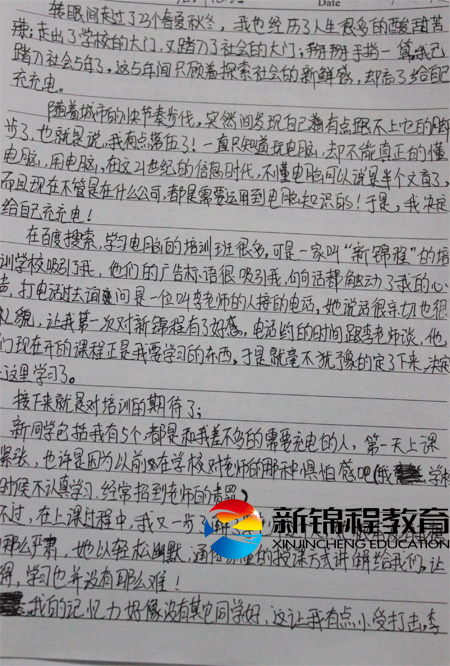 Date
转眼间走过了23个春夏秋冬，我也经历了人生很多的酸甜苦
辣；走出了学校的大门，又踏了社会的大门；掰掰手指一算，我已
踏入社会5年了。这5年间只顾着探索社会的新鲜感，却忘了给自己
充充电。
随着城市的快节奏步代，突然间发现自己有点跟不上它的脚
步了。也就是说，我有点落伍了！一直只知道玩电脑，却不能真正的懂
电脑，用电脑，在这21世纪的信息时代，不懂电脑可以说是半个文盲了，
而且现在不管是在什么公司，都是需要运用到电脑知识的！于是，我决定
给自己充充电！
在百度搜索，学习电脑的培训班很多，可是一家叫“新锦程”的培
训学校吸引了我，他们的广告标语很吸引我，句句话都触动了我的心
声，打电话过去询问是一位叫李老师的人接的电话，她说话很亲切也很
礼貌，让我第一次对新锦程有了好感，电话约的时间跟李老师谈，他
们现在开的课程正是我要学习的东西，于是就毫不犹豫的定了下来，决定
这里学习了。
接下来就是对培训的期待了；
新同学包括我有5个，都是和我差不多的需要充电的人，第一天上课
紧张，也许是因为以前在学校对老师的那种惧怕感吧（我学校
时候不认真学习，经常招到老师的责罚）
不过，在上课过程中，我又一步了解了
那么严肃，她以轻松幽默，通俗易懂的授课方式讲解给我们。让
得，学习也并没有那么难！
我的记忆力好像没有其它同学好，这让我有点小受打击。李
新锦程教育
XINJINCHENG EDUCATION